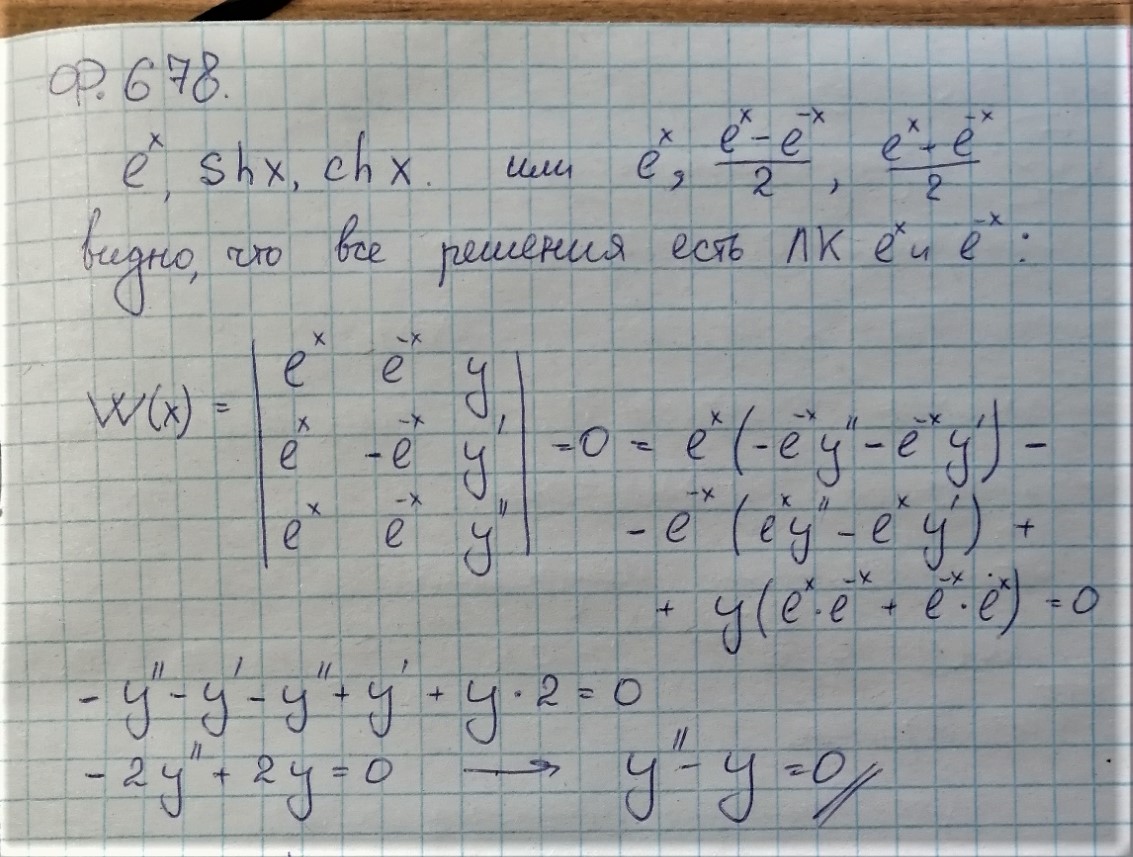 Ф. 678.
eˣ, sh x, ch x. или eˣ, (eˣ - e⁻ˣ)/2, (eˣ + e⁻ˣ)/2
видно, что все решения есть ЛК eˣ и e⁻ˣ:
W(x) = | eˣ e⁻ˣ y |
| eˣ -e⁻ˣ y' | = 0 = eˣ(-e⁻ˣy'' - e⁻ˣy') -
| eˣ e⁻ˣ y'' | - e⁻ˣ(eˣy'' - eˣy') +
+ y(eˣ·e⁻ˣ + e⁻ˣ·eˣ) = 0
- y'' - y' - y'' + y' + y·2 = 0
- 2y'' + 2y = 0 → y'' - y = 0 //